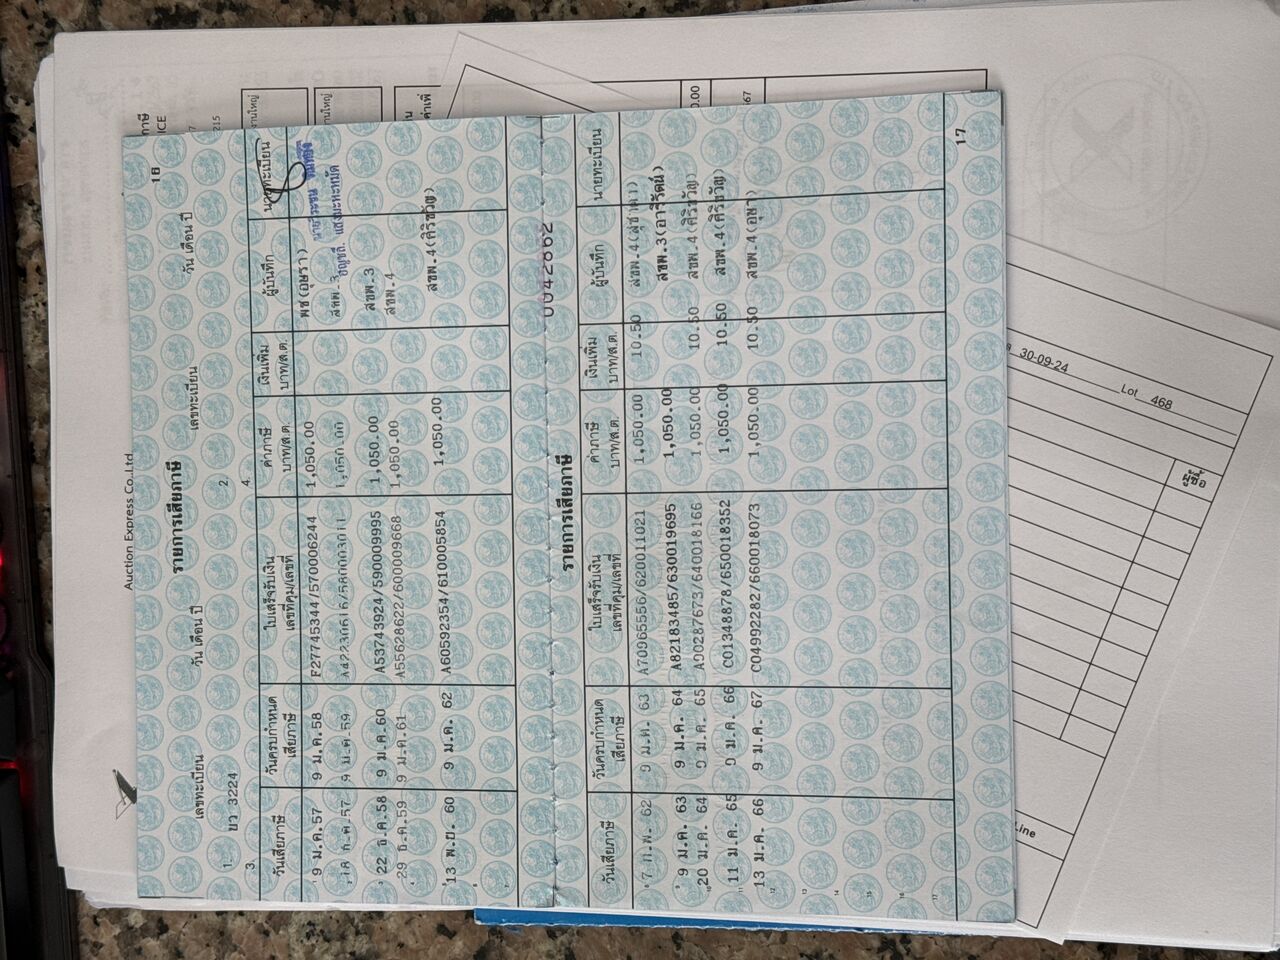 16
รายการเสียภาษี
เลขทะเบียน วัน เดือน ปี เลขทะเบียน วัน เดือน ปี
1. ยว 3224 2.
3. 4.
วันเสียภาษี วันครบกำหนดเสียภาษี ใบเสร็จรับเงิน เลขที่คุม/เลขที่ ค่าภาษี บาท/ส.ต. เงินเพิ่ม บาท/ส.ต. ผู้บันทึก นายทะเบียน
9 ม.ค.57 9 ม.ค.58 F27745344/570006244 1,050.00 พช(อุษรา)
18 ก.ค.57 9 ม.ค.59 A42230616/580003011 1,050.00 สขพ.3
22 ธ.ค.58 9 ม.ค.60 A53743924/590009995 1,050.00 สขพ.3
29 ธ.ค.59 9 ม.ค.61 A55628622/600009668 1,050.00 สขพ.4
13 พ.ย. 60 9 ม.ค. 62 A60592354/610005854 1,050.00 สขพ.4(ศิริขวัญ)
0042662
รายการเสียภาษี
วันเสียภาษี วันครบกำหนดเสียภาษี ใบเสร็จรับเงิน เลขที่คุม/เลขที่ ค่าภาษี บาท/ส.ต. เงินเพิ่ม บาท/ส.ต. ผู้บันทึก นายทะเบียน
7 ก.พ. 62 9 ม.ค. 63 A70965556/620011021 1,050.00 10.50 สขพ.4(สุชาดา)
9 ม.ค. 63 9 ม.ค. 64 A82183485/630019695 1,050.00 สขพ.3(อาวีรัตน์)
20 ม.ค. 64 9 ม.ค. 65 A90287673/640018166 1,050.00 10.50 สขพ.4(ศิริขวัญ)
11 ม.ค. 65 9 ม.ค. 66 C01348878/650018352 1,050.00 10.50 สขพ.4(ศิริขวัญ)
13 ม.ค. 66 9 ม.ค. 67 C04992282/660018073 1,050.00 10.50 สขพ.4(อุษา)
17
Auction Express Co.,Ltd
30-09-24 Lot 468
ผู้ซื้อ
Line